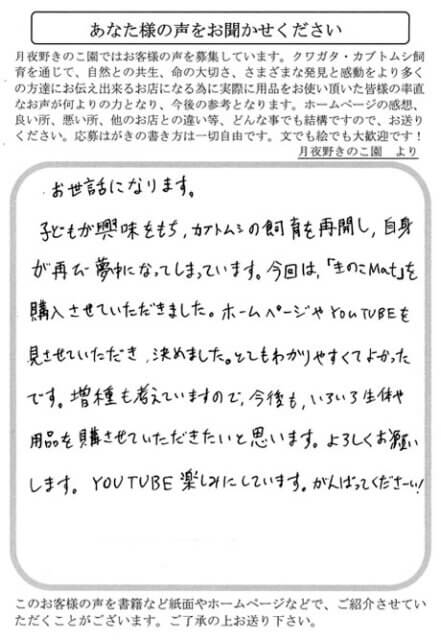 あなた様の声をお聞かせください
月夜野きのこ園ではお客様の声を募集しています。クワガタ・カブトムシ飼
育を通じて、自然との共生、命の大切さ、さまざまな発見と感動をより多く
の方達にお伝え出来るお店になる為に実際に用品をお使い頂いた皆様の率直
なお声が何よりの力となり、今後の参考となります。ホームページの感想、
良い所、悪い所、他のお店との違い等、どんな事でも結構ですので、お送り
ください。応募はがきの書き方は一切自由です。文でも絵でも大歓迎です！
月夜野きのこ園　より
お世話になります。
子どもが興味をもち,カブトムシの飼育を再開し,自身
が再び夢中になってしまっています。今回は,「きのこMat」を
購入させていただきました。ホームページやYouTUBEを
見させていただき,決めました。とてもわかりやすくてよかった
です。増種も考えていますので,今後も,いろいろ生体や
用品を購させていただきたいと思います。よろしくお願い
します。YOUTUBE楽しみにしています。がんばってくださーい!
このお客様の声を書籍など紙面やホームページなどで、ご紹介させてい
ただくことがございます。ご了承の上お送り下さい。